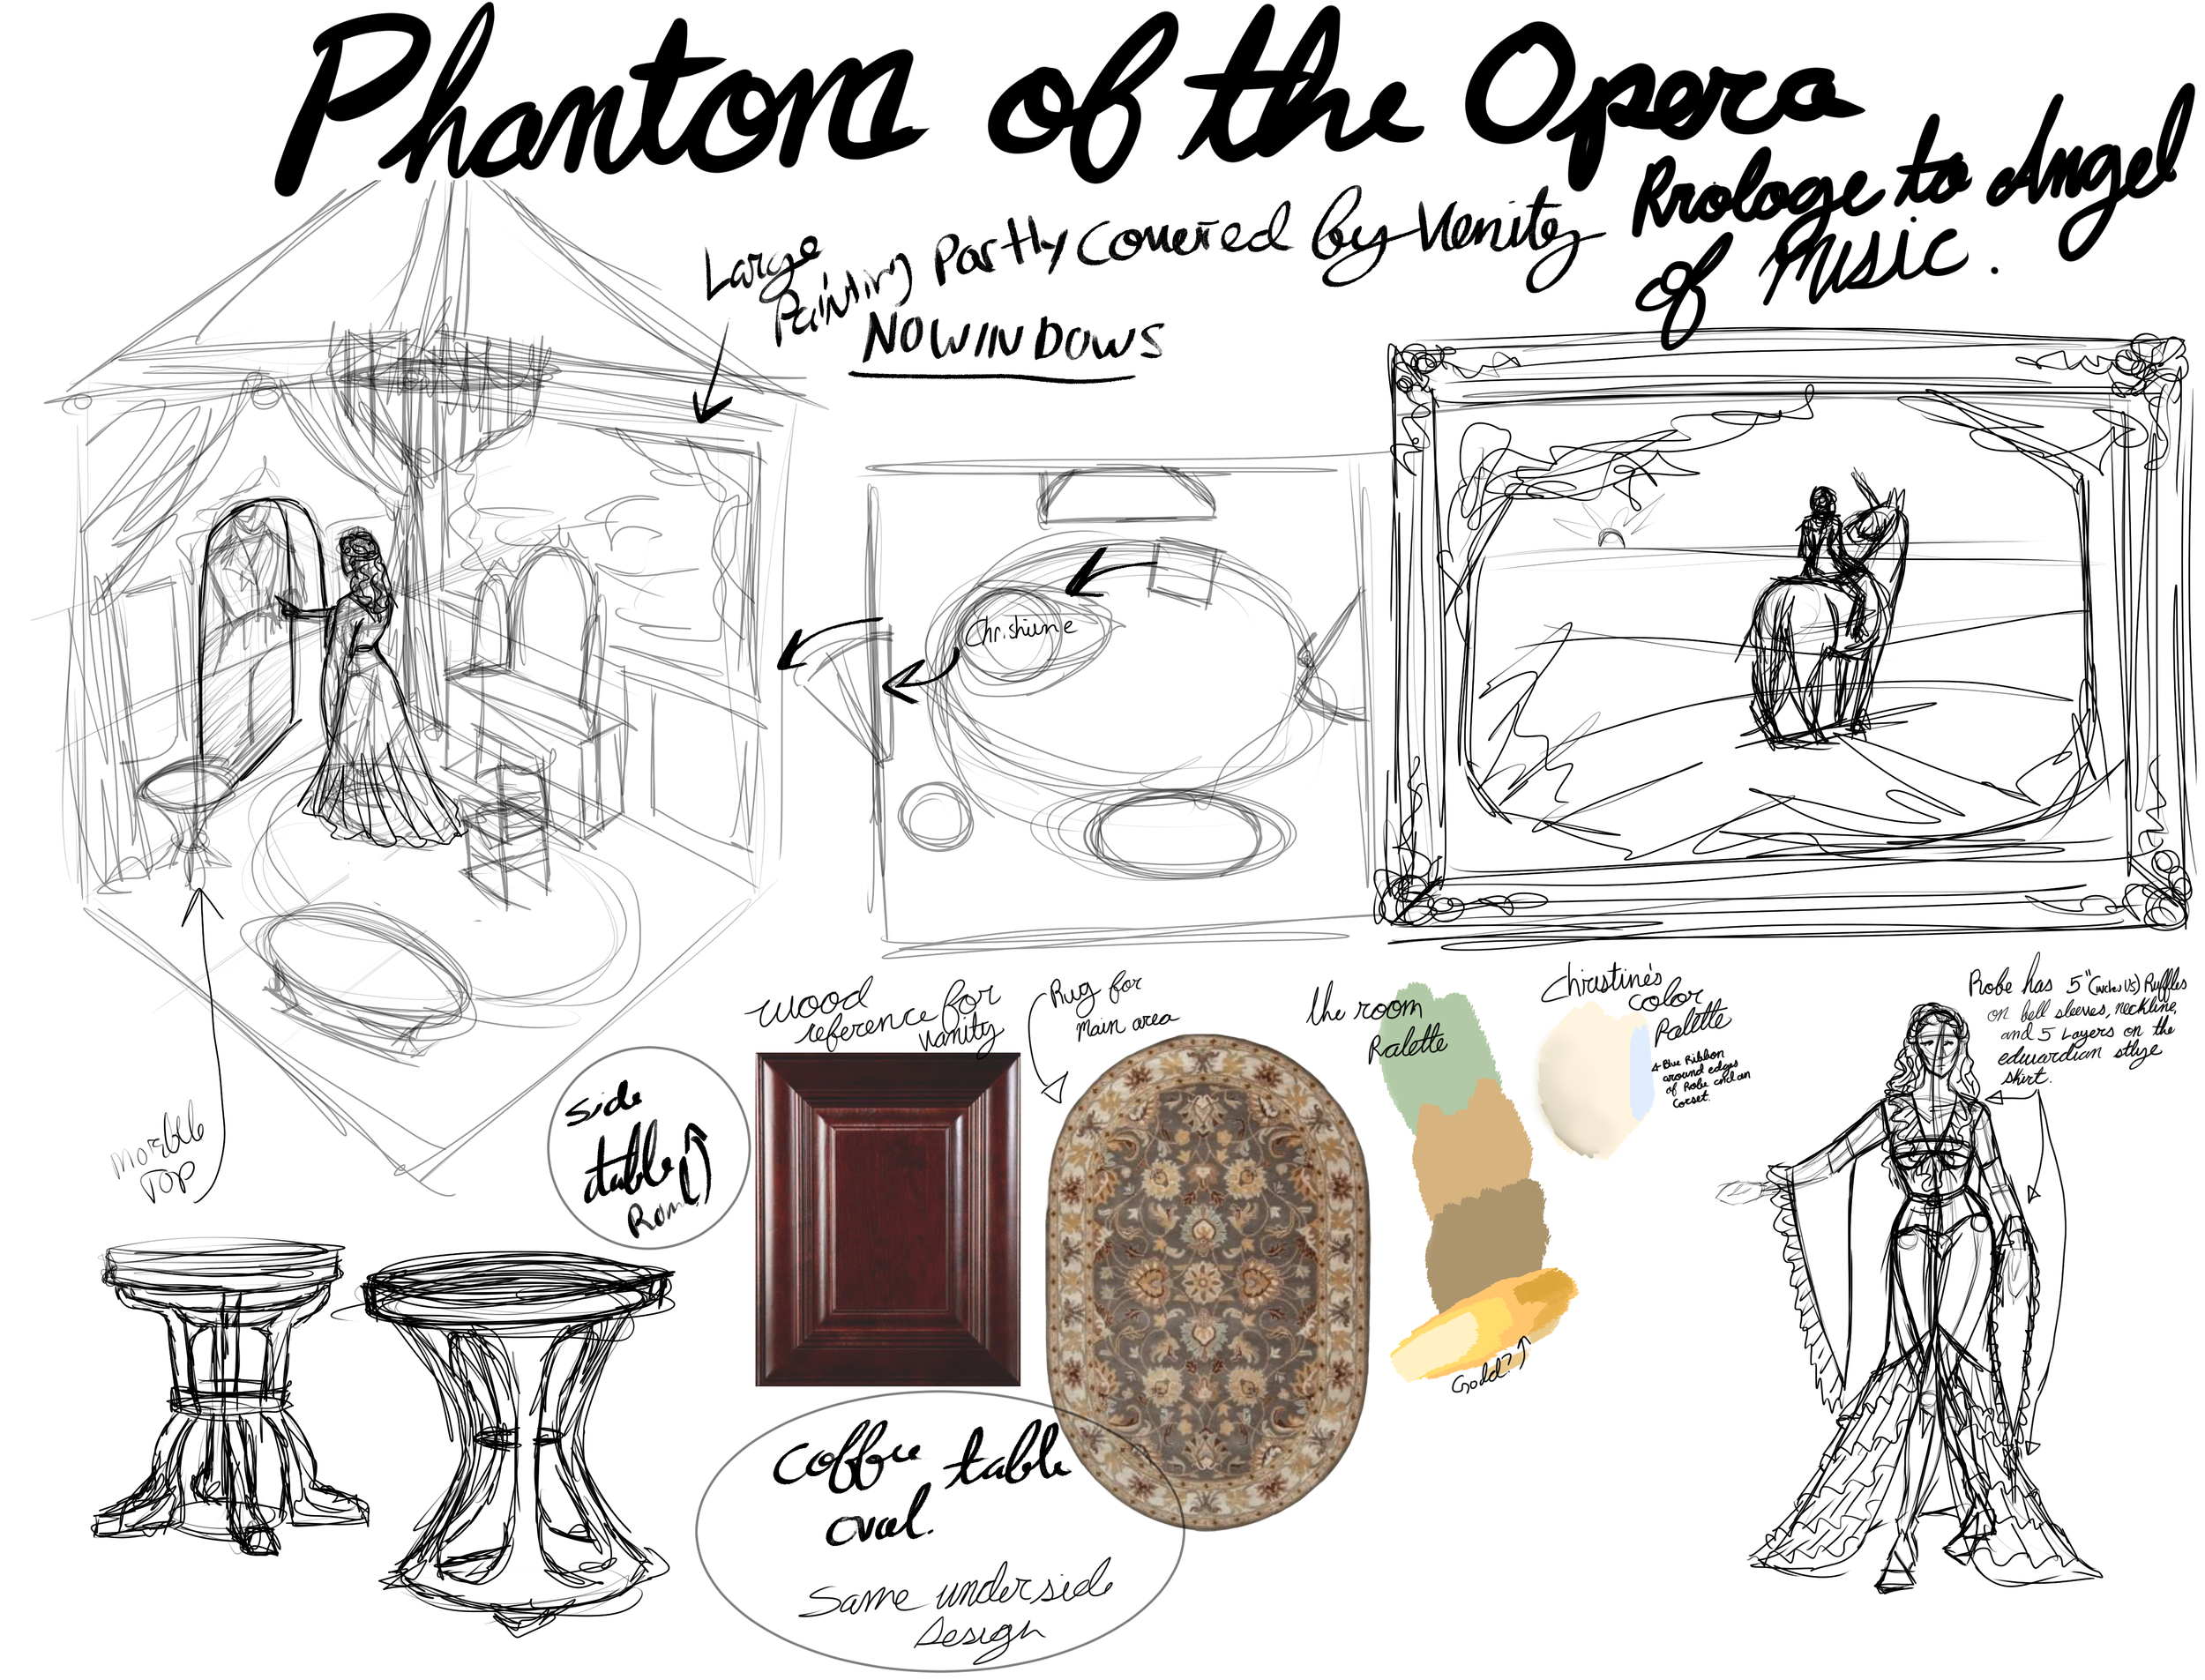 Phantom of the Opera
Prologe to Angel
of Music.
Large
Painting Partly Covered by Venity
NO WINDOWS
Christine
wood
reference for
vanity
Rug for
main area
the room
Palette
Christine's
color
Palette
Blue Ribbon
around edges
of Robe and on
Corset.
Robe has 5" (inches US) Ruffles
on bell sleeves, neckline,
and 5 Layers on the
edwardian stlye
skirt.
Side
table
Marble
Top
Gold?
coffee table
oval.
Same underside
Design